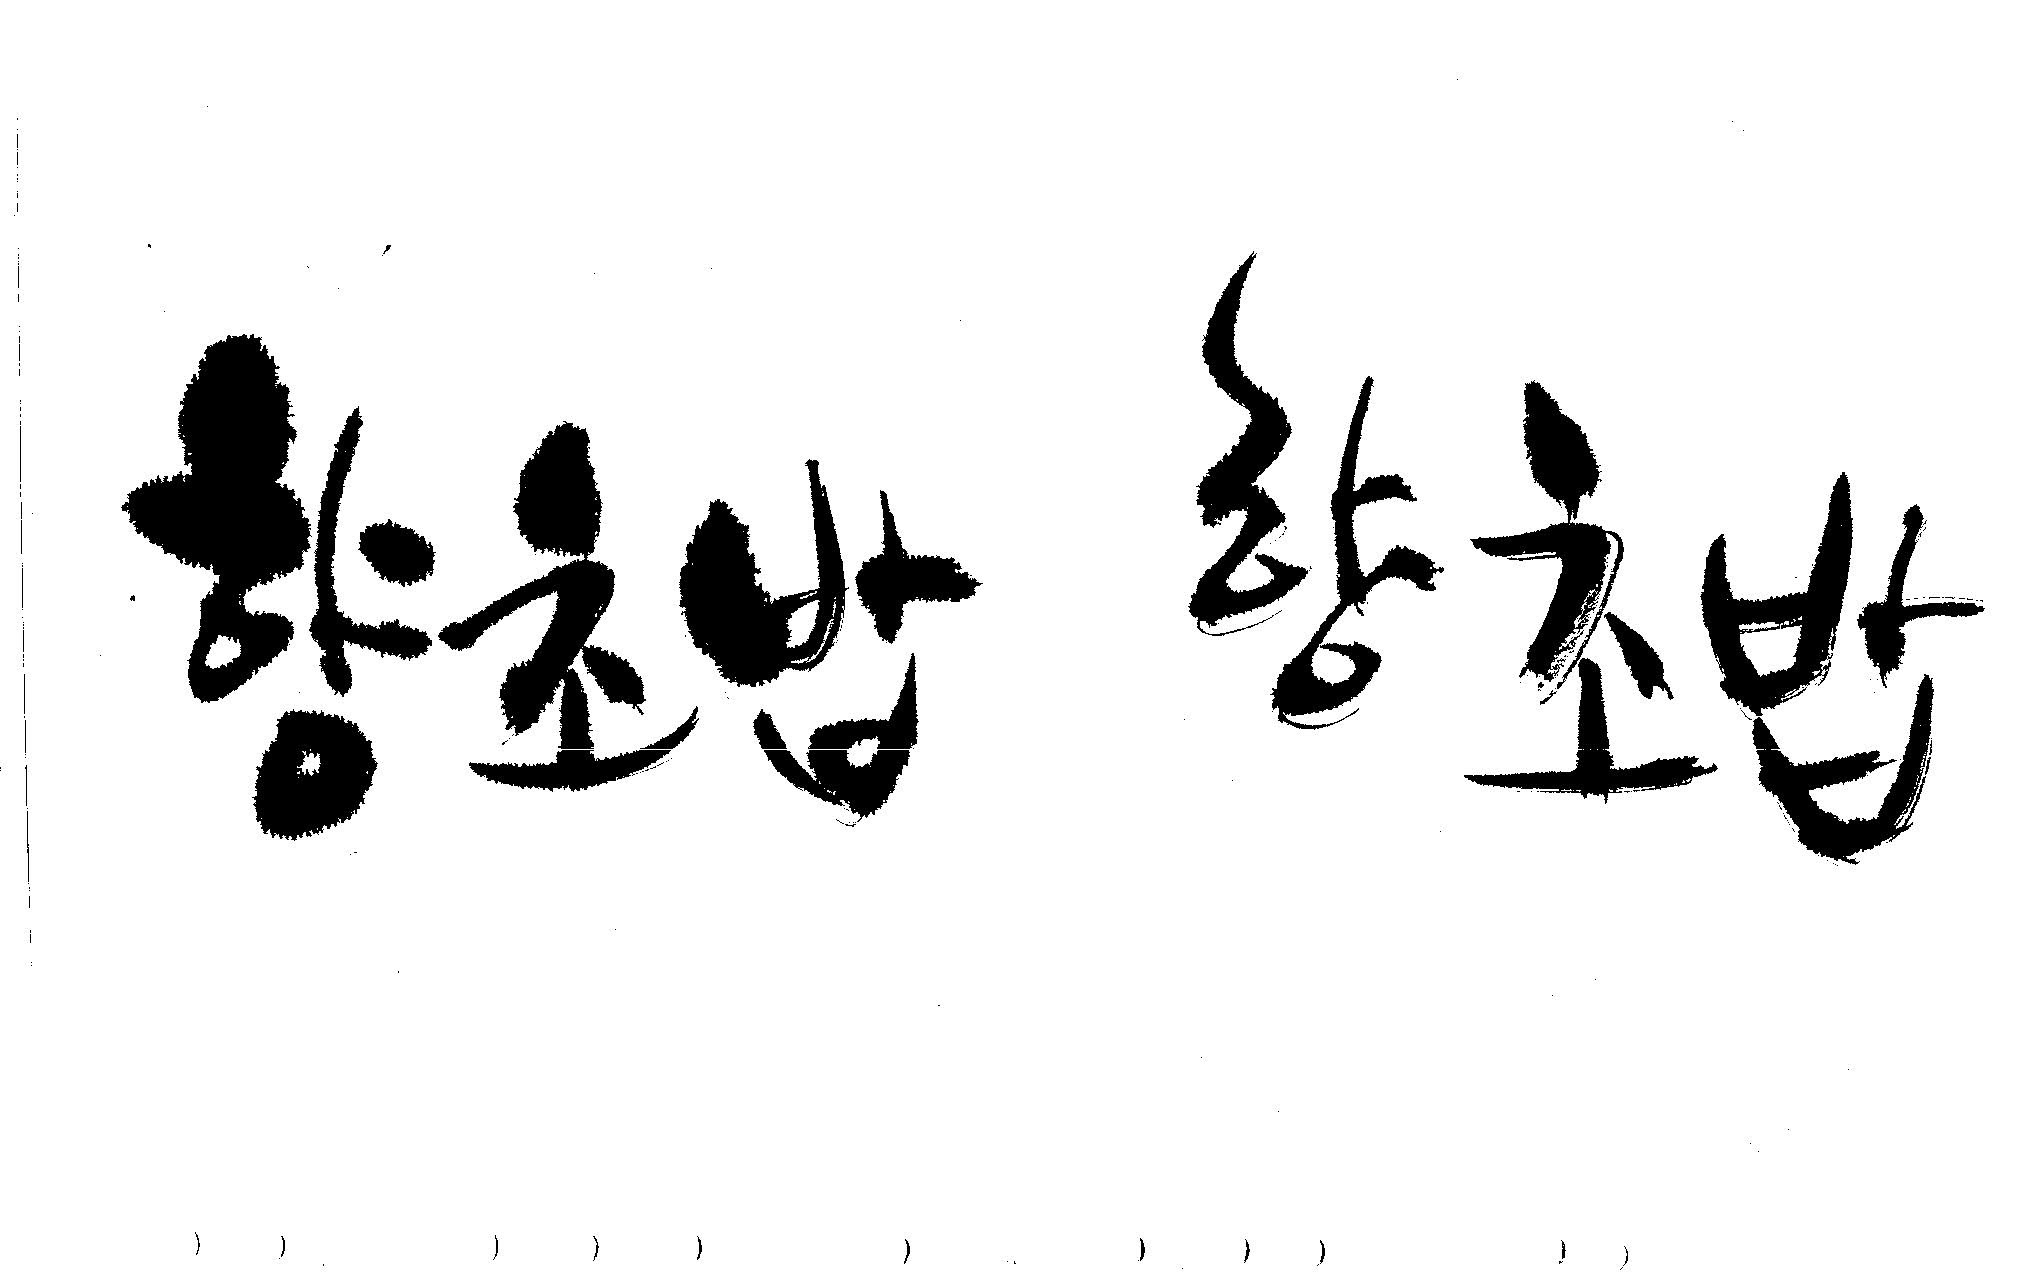 향초밥 향초밥